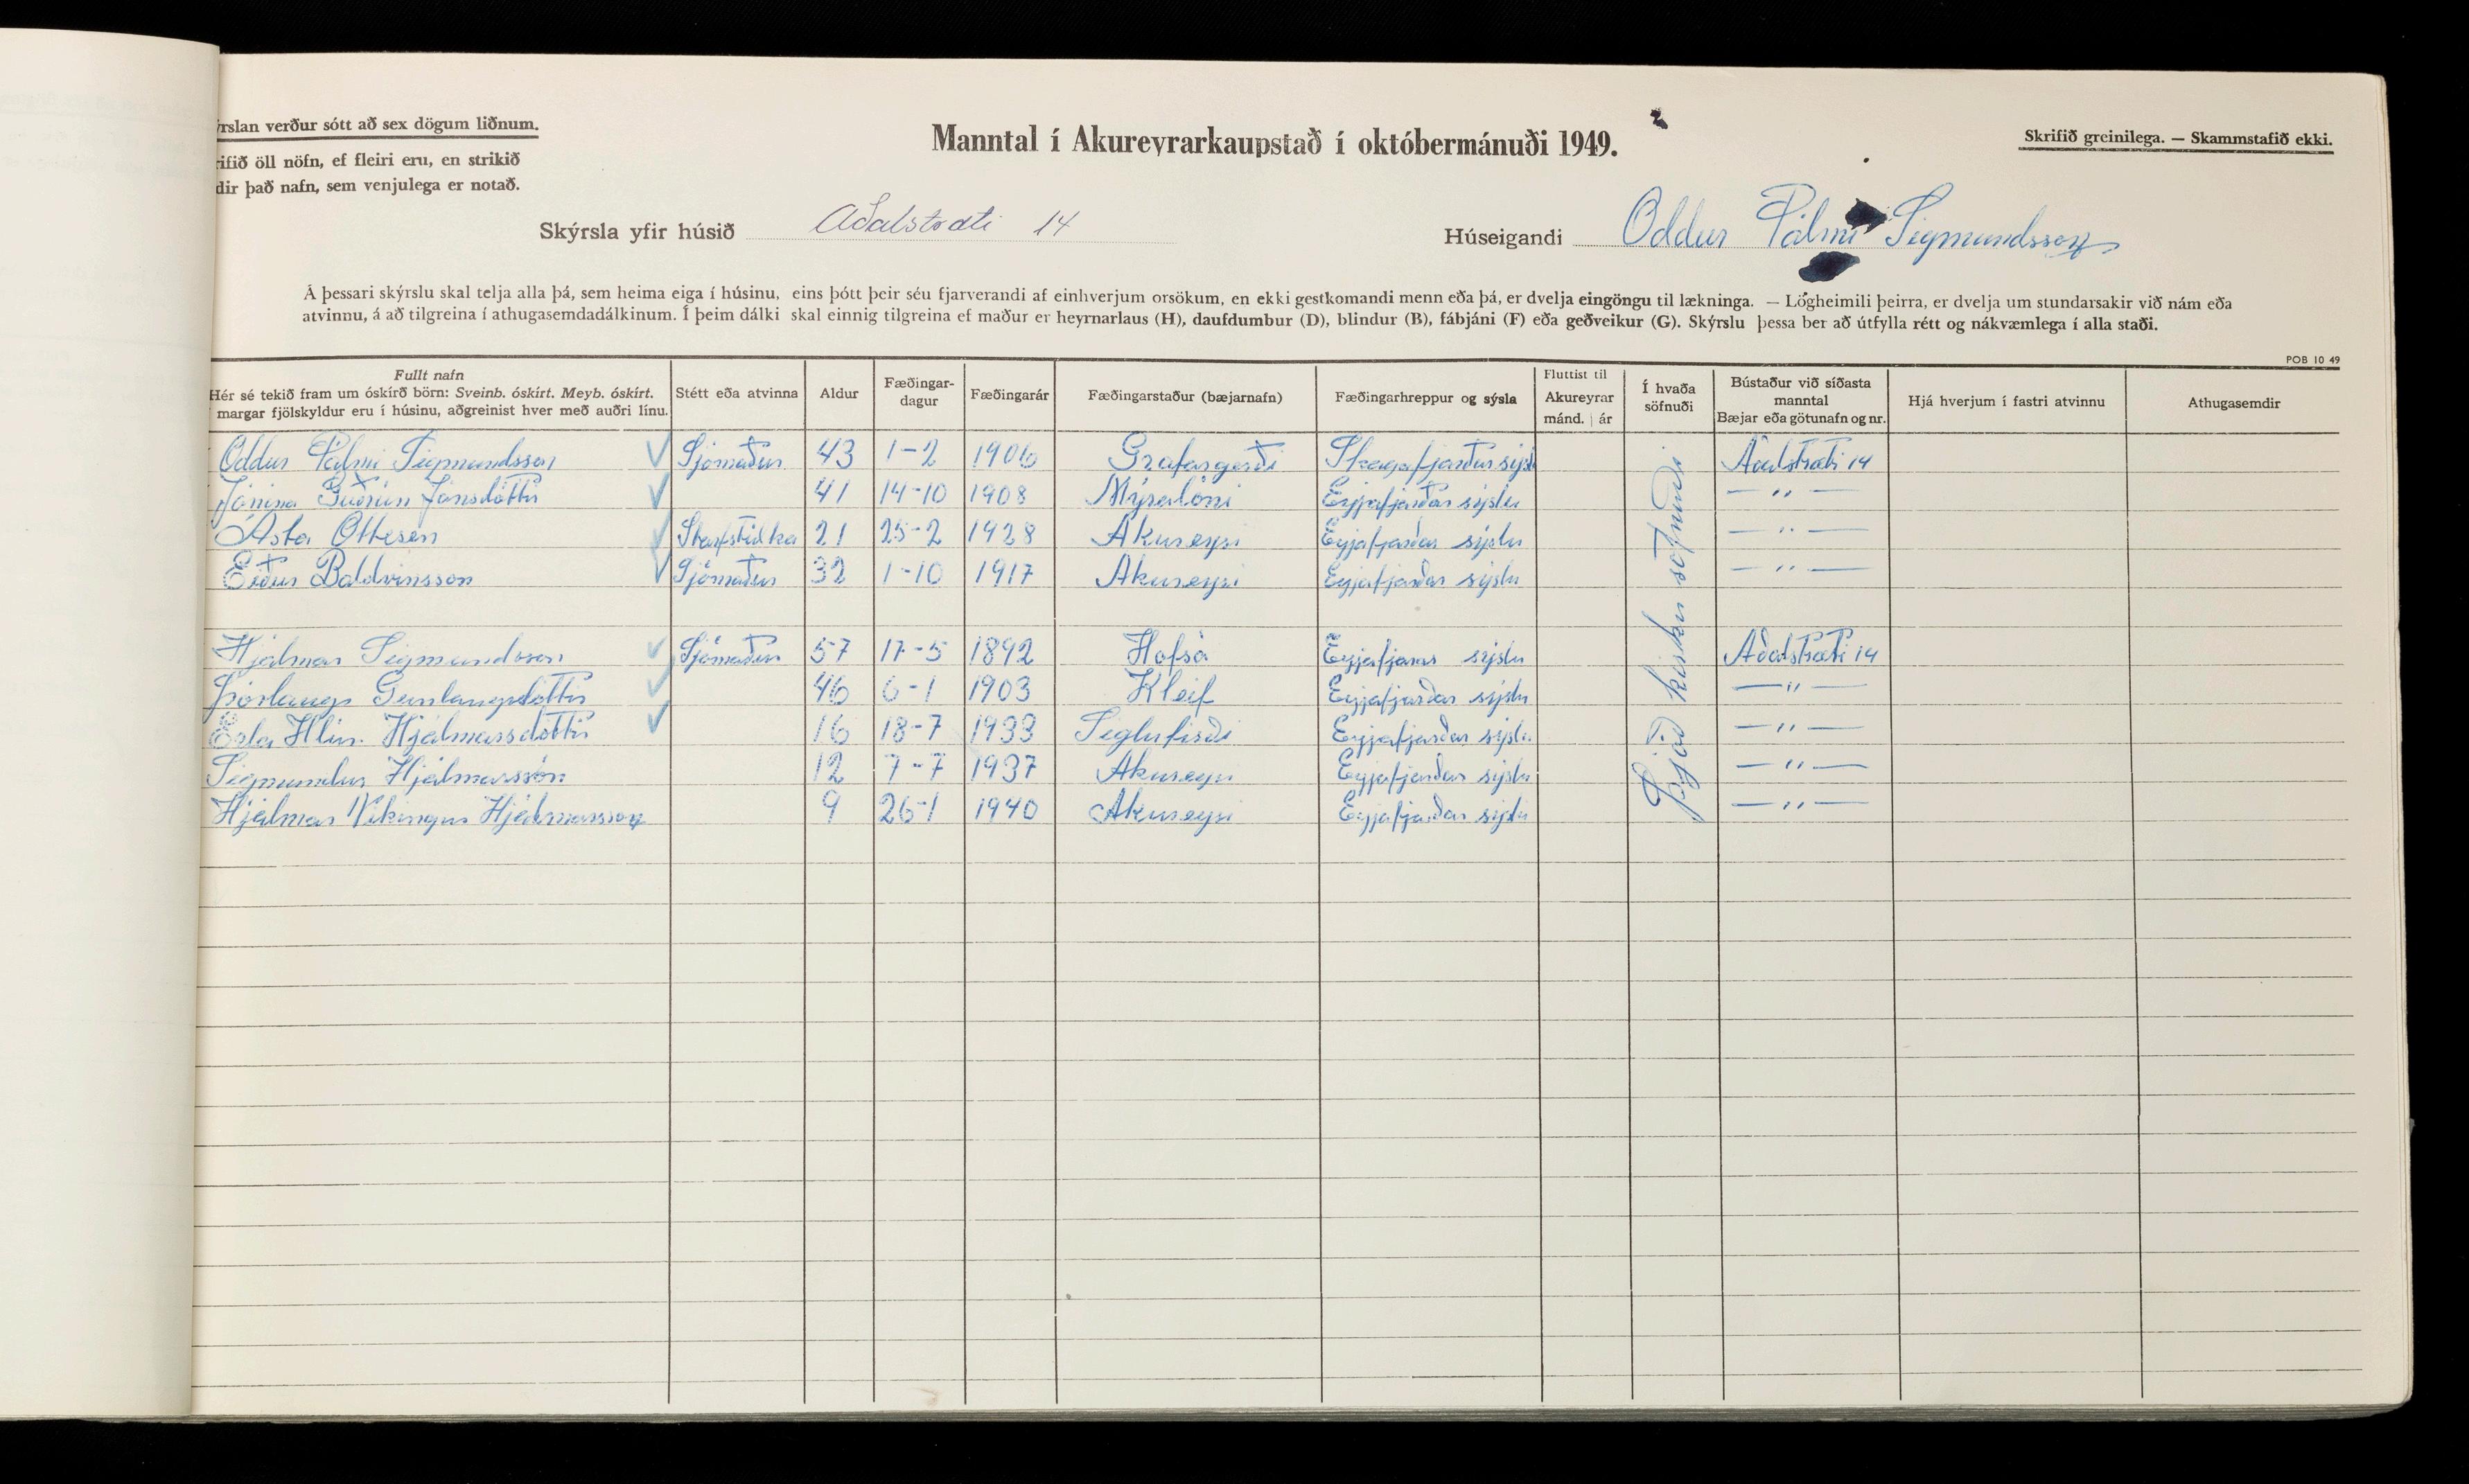 rslan verður sótt að sex dögum liðnum.
Manntal í Akureyrarkaupstað í októbermánuði 1949.
Skrifið greinilega. — Skammstafið ekki.
ifið öll nöfn, ef fleiri eru, en strikið
dir það nafn, sem venjulega er notað.
Skýrsla yfir húsið Aðalstræti 14
Húseigandi Oddur Pálmi Sigmundsson
Á þessari skýrslu skal telja alla þá, sem heima eiga í húsinu, eins þótt þeir séu fjarverandi af einhverjum orsökum, en ekki gestkomandi menn eða þá, er dvelja eingöngu til lækninga. — Lögheimili þeirra, er dvelja um stundarsakir við nám eða
atvinnu, á að tilgreina í athugasemdadálkinum. Í þeim dálki skal einnig tilgreina ef maður er heyrnarlaus (H), daufdumbur (D), blindur (B), fábjáni (F) eða geðveikur (G). Skýrslu þessa ber að útfylla rétt og nákvæmlega í alla staði.
POB 10 49
Fullt nafn
Hér sé tekið fram um óskírð börn: Sveinb. óskírt. Meyb. óskírt.
margar fjölskyldur eru í húsinu, aðgreinist hver með auðri línu.
Stétt eða atvinna
Aldur
Fæðingar-
dagur
Fæðingarár
Fæðingarstaður (bæjarnafn)
Fæðingarhreppur og sýsla
Fluttist til
Akureyrar
mánd. ár
Í hvaða
söfnuði
Bústaður við síðasta
manntal
Bæjar eða götunafn og nr.
Hjá hverjum í fastri atvinnu
Athugasemdir
Oddur Pálmi Sigmundsson Sjómaður 43 1-2 1906 Grafargerði Skagafjarðarsýsl Aðalstræti 14
Jónína Guðrún Jónsdóttir 41 14-10 1908 Mýralóni Eyjafjarðar sýslu — " —
Ásta Ottesen Starfstúlka 21 25-2 1928 Akureyri Eyjafjarðar sýslu — " —
Eiður Baldvinsson Sjómaður 32 1-10 1917 Akureyri Eyjafjarðar sýslu — " —
Hjálmar Sigmundsson Sjómaður 57 17-5 1892 Hofsá Eyjafjarðar sýslu Aðalstræti 14
Þórlaug Gunlaugsdóttir 46 6-1 1903 Kleif Eyjafjarðar sýslu — " —
Erla Hlín Hjálmarsdóttir 16 18-7 1933 Siglufirði Eyjafjarðar sýslu — " —
Sigmundur Hjálmarsson 12 7-7 1937 Akureyri Eyjafjarðar sýslu — " —
Hjálmar Víkingur Hjálmarsson 9 26-1 1940 Akureyri Eyjafjarðar sýslu — " —
Þjóð kirkju söfnuði